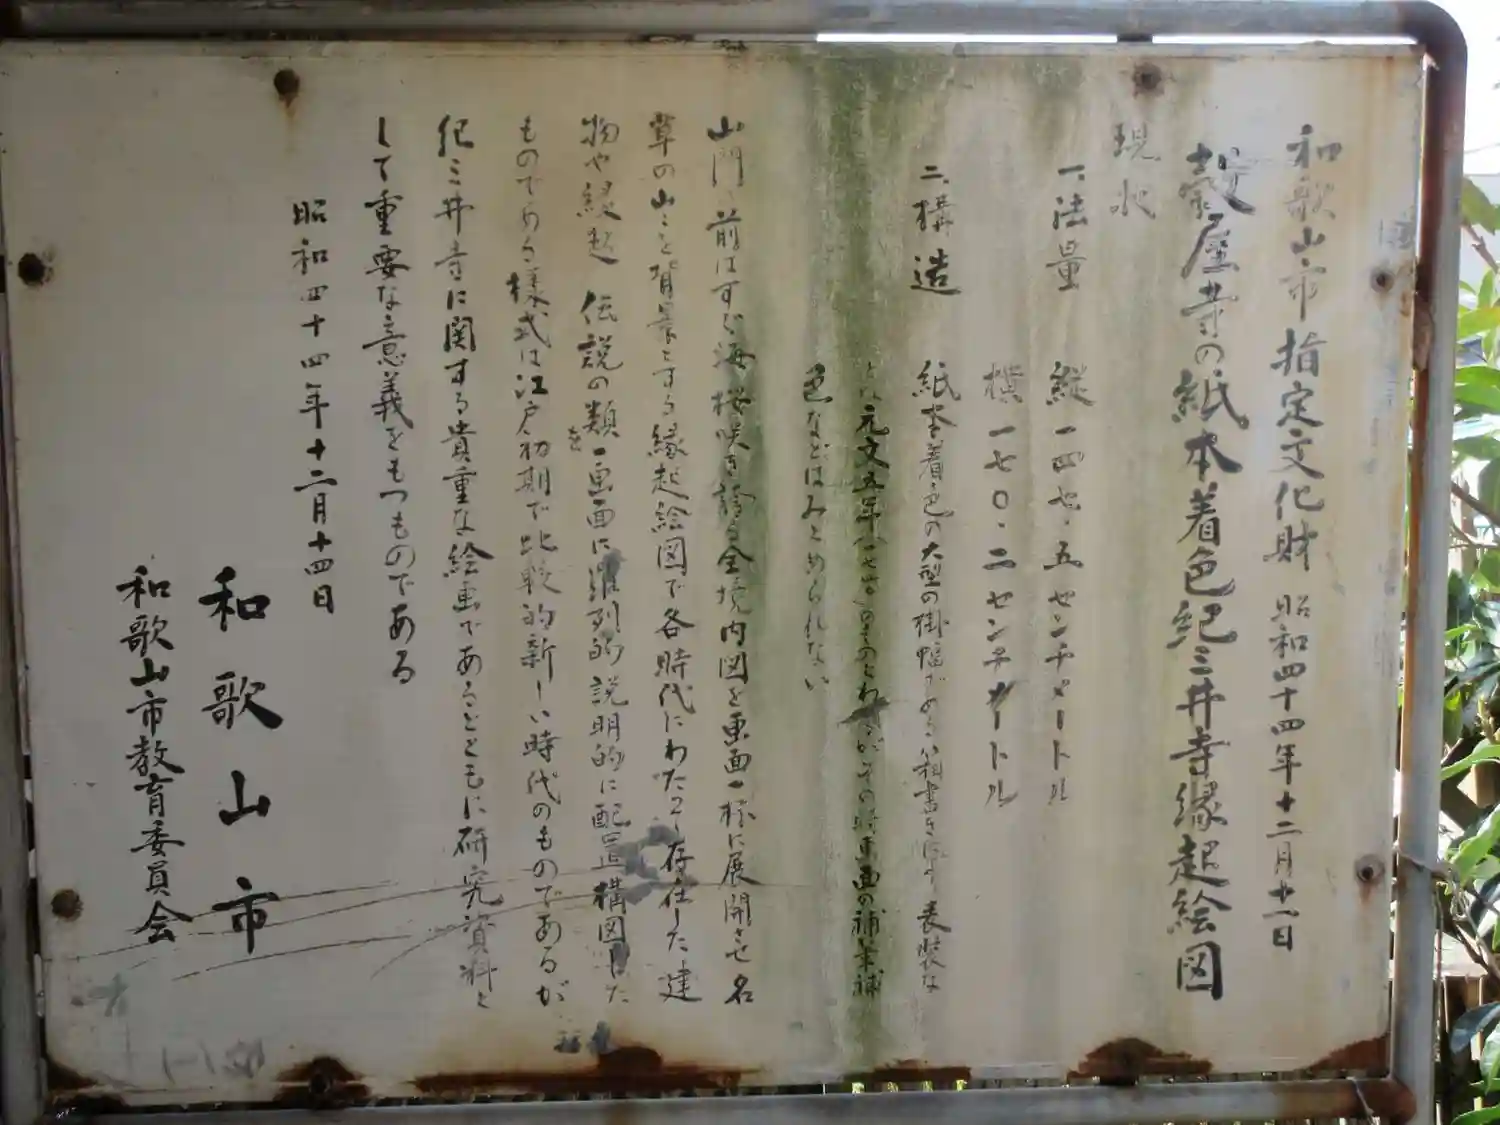 和歌山市指定文化財 昭和四十四年十二月十一日
穀屋寺の紙本着色紀三井寺縁起絵図
現状
一、法量 縦一四七・五センチメートル
横一七〇・二センチメートル
二、構造 紙本着色の大型の掛幅である 表装な
元文五年 のもの その時画面の補筆補
色などはみとめられない
山門、前はすぐ海桜咲き誇る全境内図を画面一杯に展開させ名
草の山々を背景とする縁起絵図で各時代にわたり存在した建
物や縁起 伝説の類を一画面に羅列的説明的に配置構図した
ものである様式は江戸初期で比較的新しい時代のものであるが
紀三井寺に関する貴重な絵画であるとともに研究資料と
して重要な意義をもつものである
昭和四十四年十二月十四日
和歌山市
和歌山市教育委員会